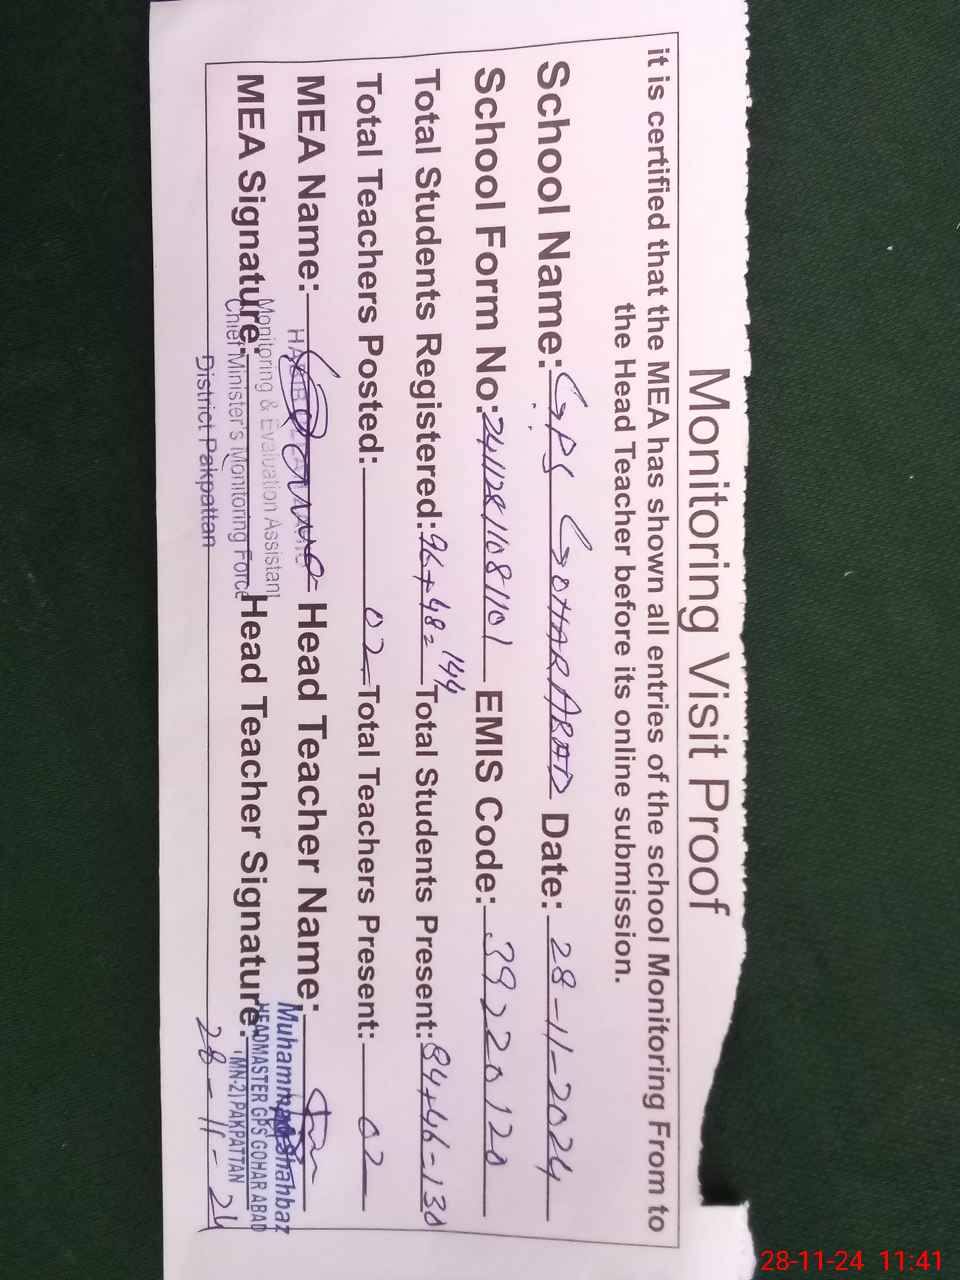 Monitoring Visit Proof
it is certified that the MEA has shown all entries of the school Monitoring From to
the Head Teacher before its online submission.
School Name: GPS GOHAR ABAD Date: 28-11-2024
School Form No: EMIS Code: 39220120
Total Students Registered: 96+48=144 Total Students Present: 84+46-130
Total Teachers Posted: 02 Total Teachers Present: 02
MEA Name: Head Teacher Name:
MEA Signature: Head Teacher Signature:
Monitoring & Evaluation Assistant
Chief Minister's Monitoring Force
District Pakpattan
Muhammad Shahbaz
HEADMASTER GPS GOHAR ABAD
(MN-2) PAKPATTAN
28-11-24
28-11-24 11:41